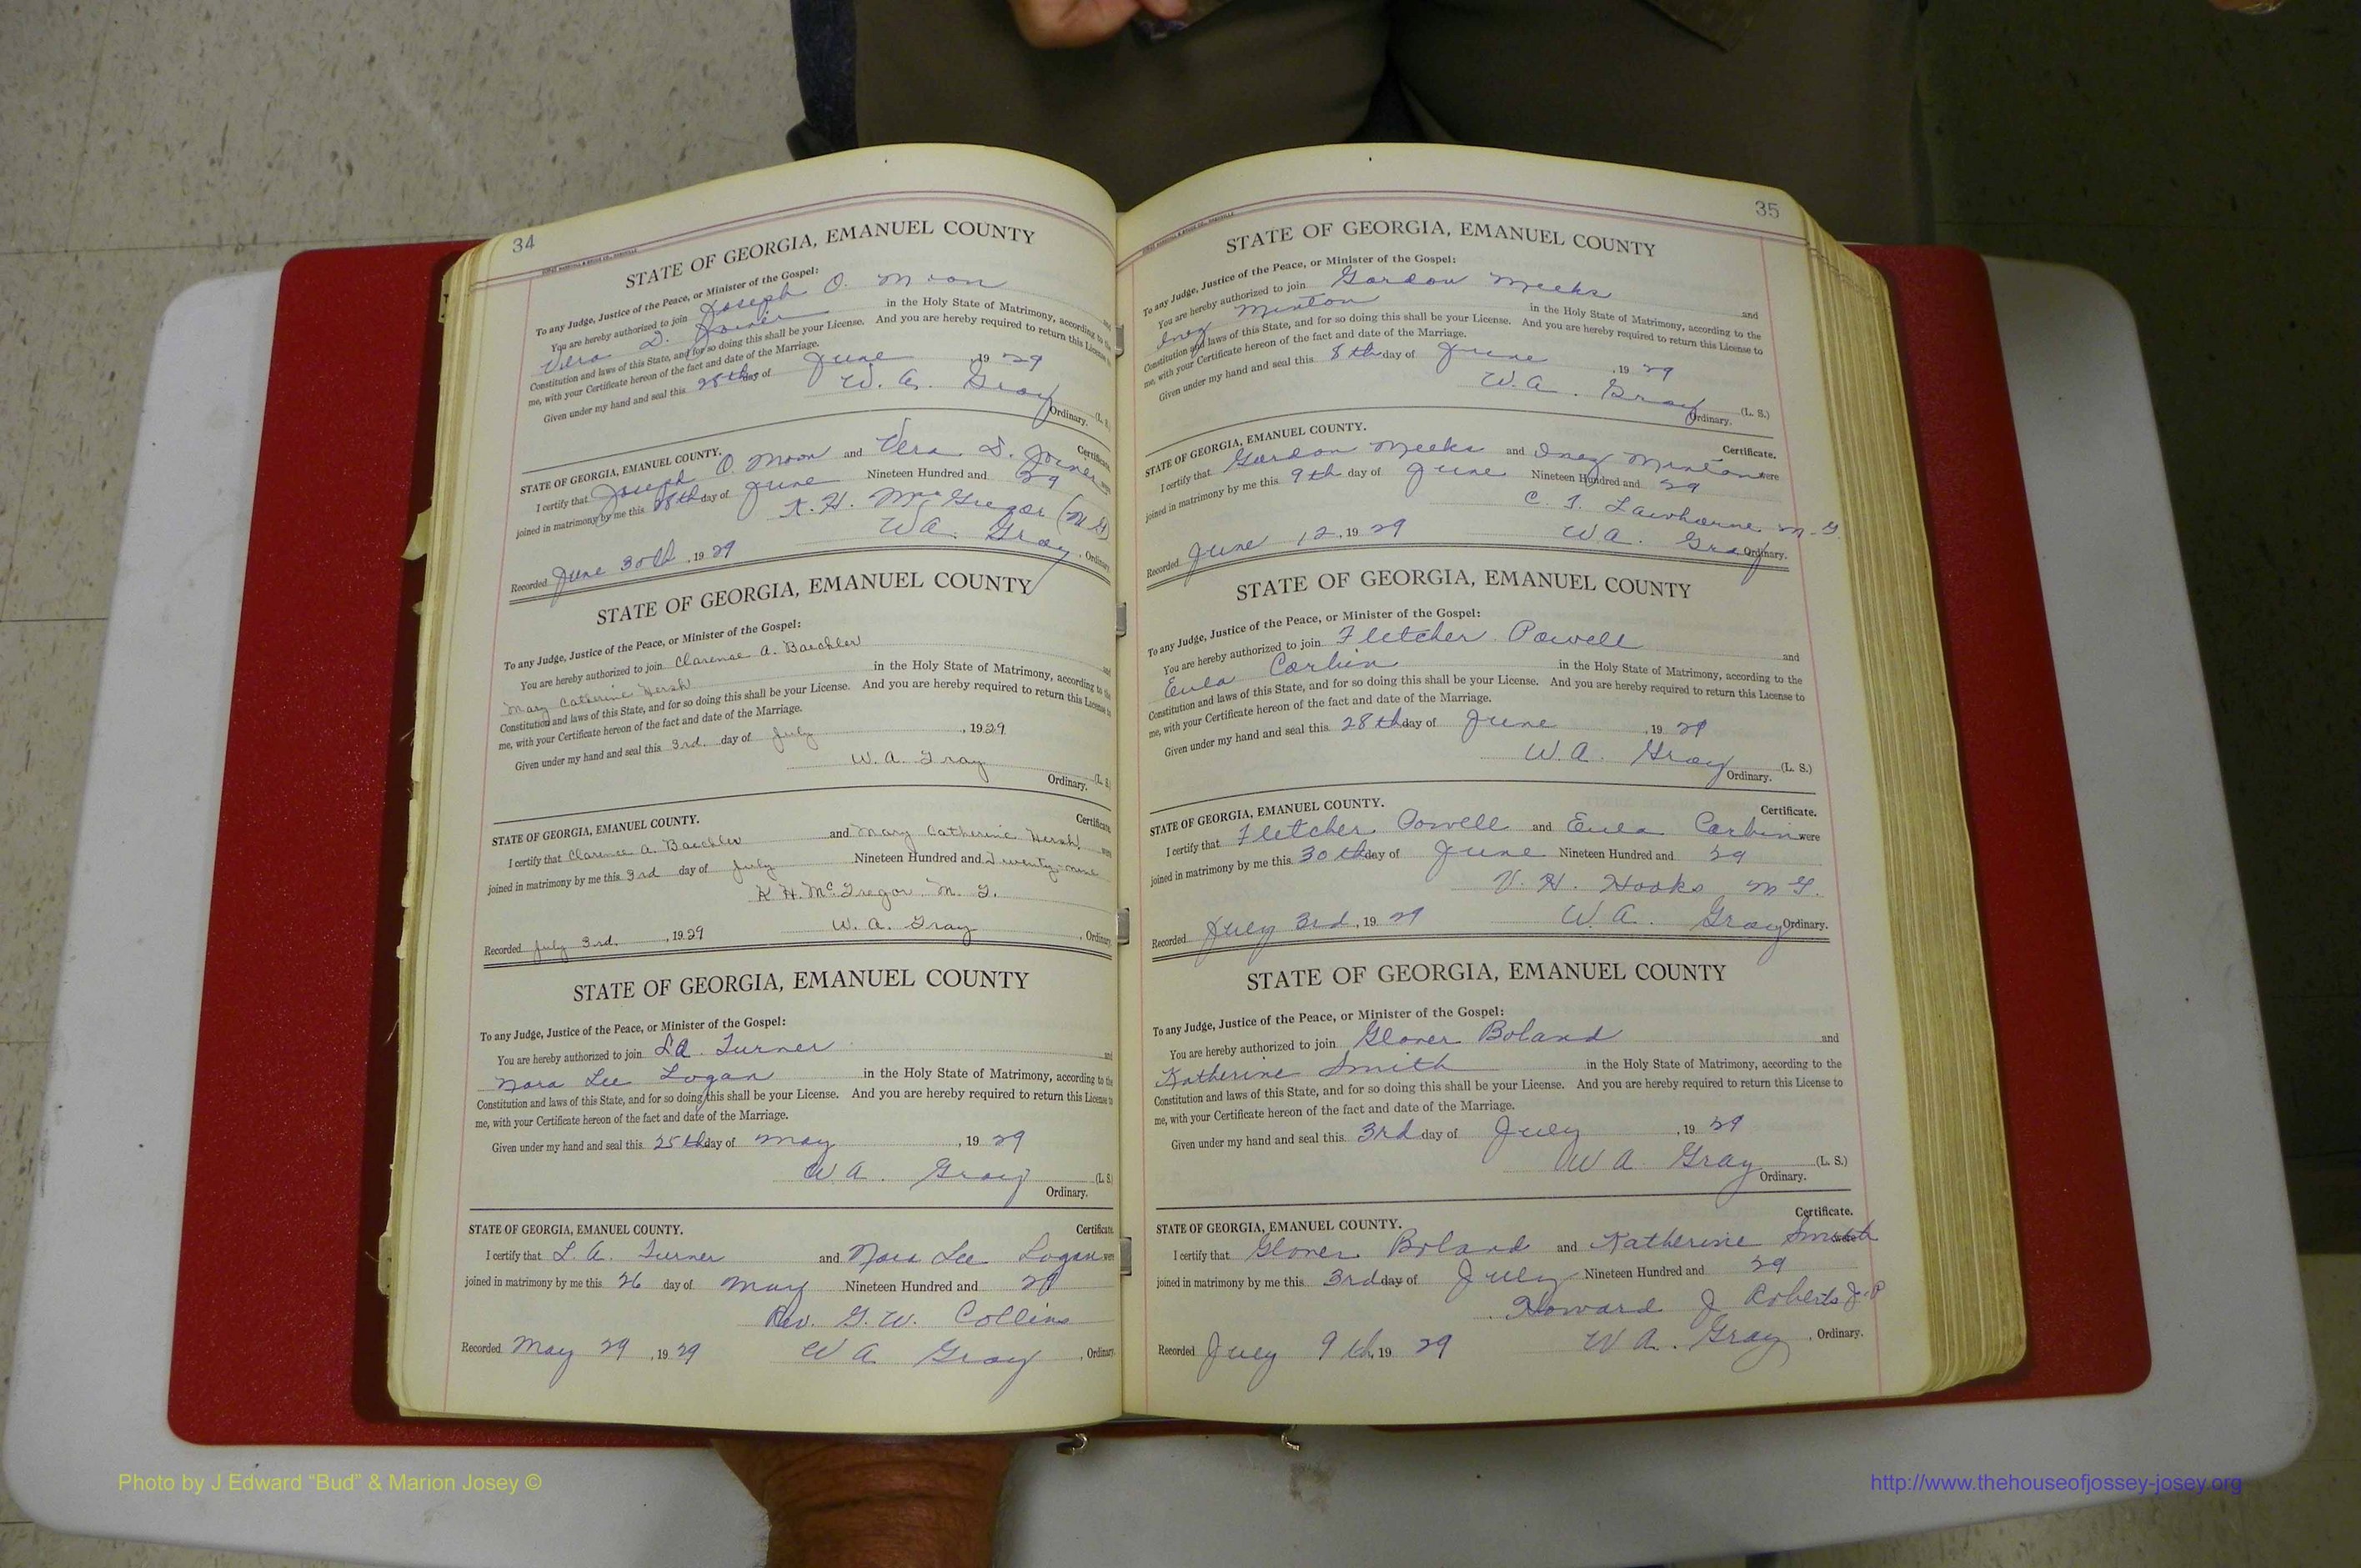 34
STATE OF GEORGIA, EMANUEL COUNTY
To any Judge, Justice of the Peace, or Minister of the Gospel:
You are hereby authorized to join Joseph O. Moon and
Vera D. Joiner in the Holy State of Matrimony, according to the
Constitution and laws of this State, and for so doing this shall be your License. And you are hereby required to return this License to
me, with your Certificate hereon of the fact and date of the Marriage.
Given under my hand and seal this 28th day of June, 19 29
W. A. Gray (L. S.)
Ordinary.
STATE OF GEORGIA, EMANUEL COUNTY. Certificate.
I certify that Joseph O. Moon and Vera D. Joiner were
joined in matrimony by me this 28th day of June Nineteen Hundred and 29
K. H. McGregor (M G)
Recorded June 30th, 19 29 W A. Gray, Ordinary
STATE OF GEORGIA, EMANUEL COUNTY
To any Judge, Justice of the Peace, or Minister of the Gospel:
You are hereby authorized to join Clarence A. Baechler and
Mary Catherine Hersh in the Holy State of Matrimony, according to the
Constitution and laws of this State, and for so doing this shall be your License. And you are hereby required to return this License to
me, with your Certificate hereon of the fact and date of the Marriage.
Given under my hand and seal this 3rd. day of July, 1929
W. A. Gray (L. S.)
Ordinary.
STATE OF GEORGIA, EMANUEL COUNTY. Certificate
I certify that Clarence A. Baechler and Mary Catherine Hersh were
joined in matrimony by me this 3rd day of July Nineteen Hundred and Twenty-nine
K. H. McGregor. M. G.
Recorded July 3rd., 1929 W. A. Gray, Ordinary
STATE OF GEORGIA, EMANUEL COUNTY
To any Judge, Justice of the Peace, or Minister of the Gospel:
You are hereby authorized to join L.A. Turner and
Nora Lee Logan in the Holy State of Matrimony, according to the
Constitution and laws of this State, and for so doing this shall be your License. And you are hereby required to return this License to
me, with your Certificate hereon of the fact and date of the Marriage.
Given under my hand and seal this 25th day of May, 19 29
W A. Gray (L. S
Ordinary.
STATE OF GEORGIA, EMANUEL COUNTY. Certificate.
I certify that L. A. Turner and Nora Lee Logan were
joined in matrimony by me this 26 day of May Nineteen Hundred and 29
Rev. G. W. Collins
Recorded May 29, 19 29 W A Gray, Ordinary
35
STATE OF GEORGIA, EMANUEL COUNTY
To any Judge, Justice of the Peace, or Minister of the Gospel:
You are hereby authorized to join Gordon Meeks and
Inez Minton in the Holy State of Matrimony, according to the
Constitution and laws of this State, and for so doing this shall be your License. And you are hereby required to return this License to
me, with your Certificate hereon of the fact and date of the Marriage.
Given under my hand and seal this 8th day of June, 19 29
W. A. Gray (L. S.)
Ordinary.
STATE OF GEORGIA, EMANUEL COUNTY. Certificate.
I certify that Gordon Meeks and Inez Minton were
joined in matrimony by me this 9th day of June Nineteen Hundred and 29
C. T. Lawhorne M. G.
Recorded June 12, 19 29 W A. Gray Ordinary.
STATE OF GEORGIA, EMANUEL COUNTY
To any Judge, Justice of the Peace, or Minister of the Gospel:
You are hereby authorized to join Fletcher Powell and
Eula Corbin in the Holy State of Matrimony, according to the
Constitution and laws of this State, and for so doing this shall be your License. And you are hereby required to return this License to
me, with your Certificate hereon of the fact and date of the Marriage.
Given under my hand and seal this 28th day of June, 19 29
W. A. Gray (L. S.)
Ordinary.
STATE OF GEORGIA, EMANUEL COUNTY. Certificate.
I certify that Fletcher Powell and Eula Corbin were
joined in matrimony by me this 30th day of June Nineteen Hundred and 29
V. H. Hooks M G.
Recorded July 3rd, 19 29 W. A. Gray Ordinary.
STATE OF GEORGIA, EMANUEL COUNTY
To any Judge, Justice of the Peace, or Minister of the Gospel:
You are hereby authorized to join Glover Boland and
Katherine Smith in the Holy State of Matrimony, according to the
Constitution and laws of this State, and for so doing this shall be your License. And you are hereby required to return this License to
me, with your Certificate hereon of the fact and date of the Marriage.
Given under my hand and seal this 3rd day of July, 19 29
W A. Gray (L. S.)
Ordinary.
STATE OF GEORGIA, EMANUEL COUNTY. Certificate.
I certify that Glover Boland and Katherine Smith were
joined in matrimony by me this 3rd day of July Nineteen Hundred and 29
Howard J Roberts J. P
Recorded July 9th, 19 29 W A. Gray, Ordinary.
Photo by J Edward “Bud” & Marion Josey ©
http://www.thehouseofjossey-josey.org